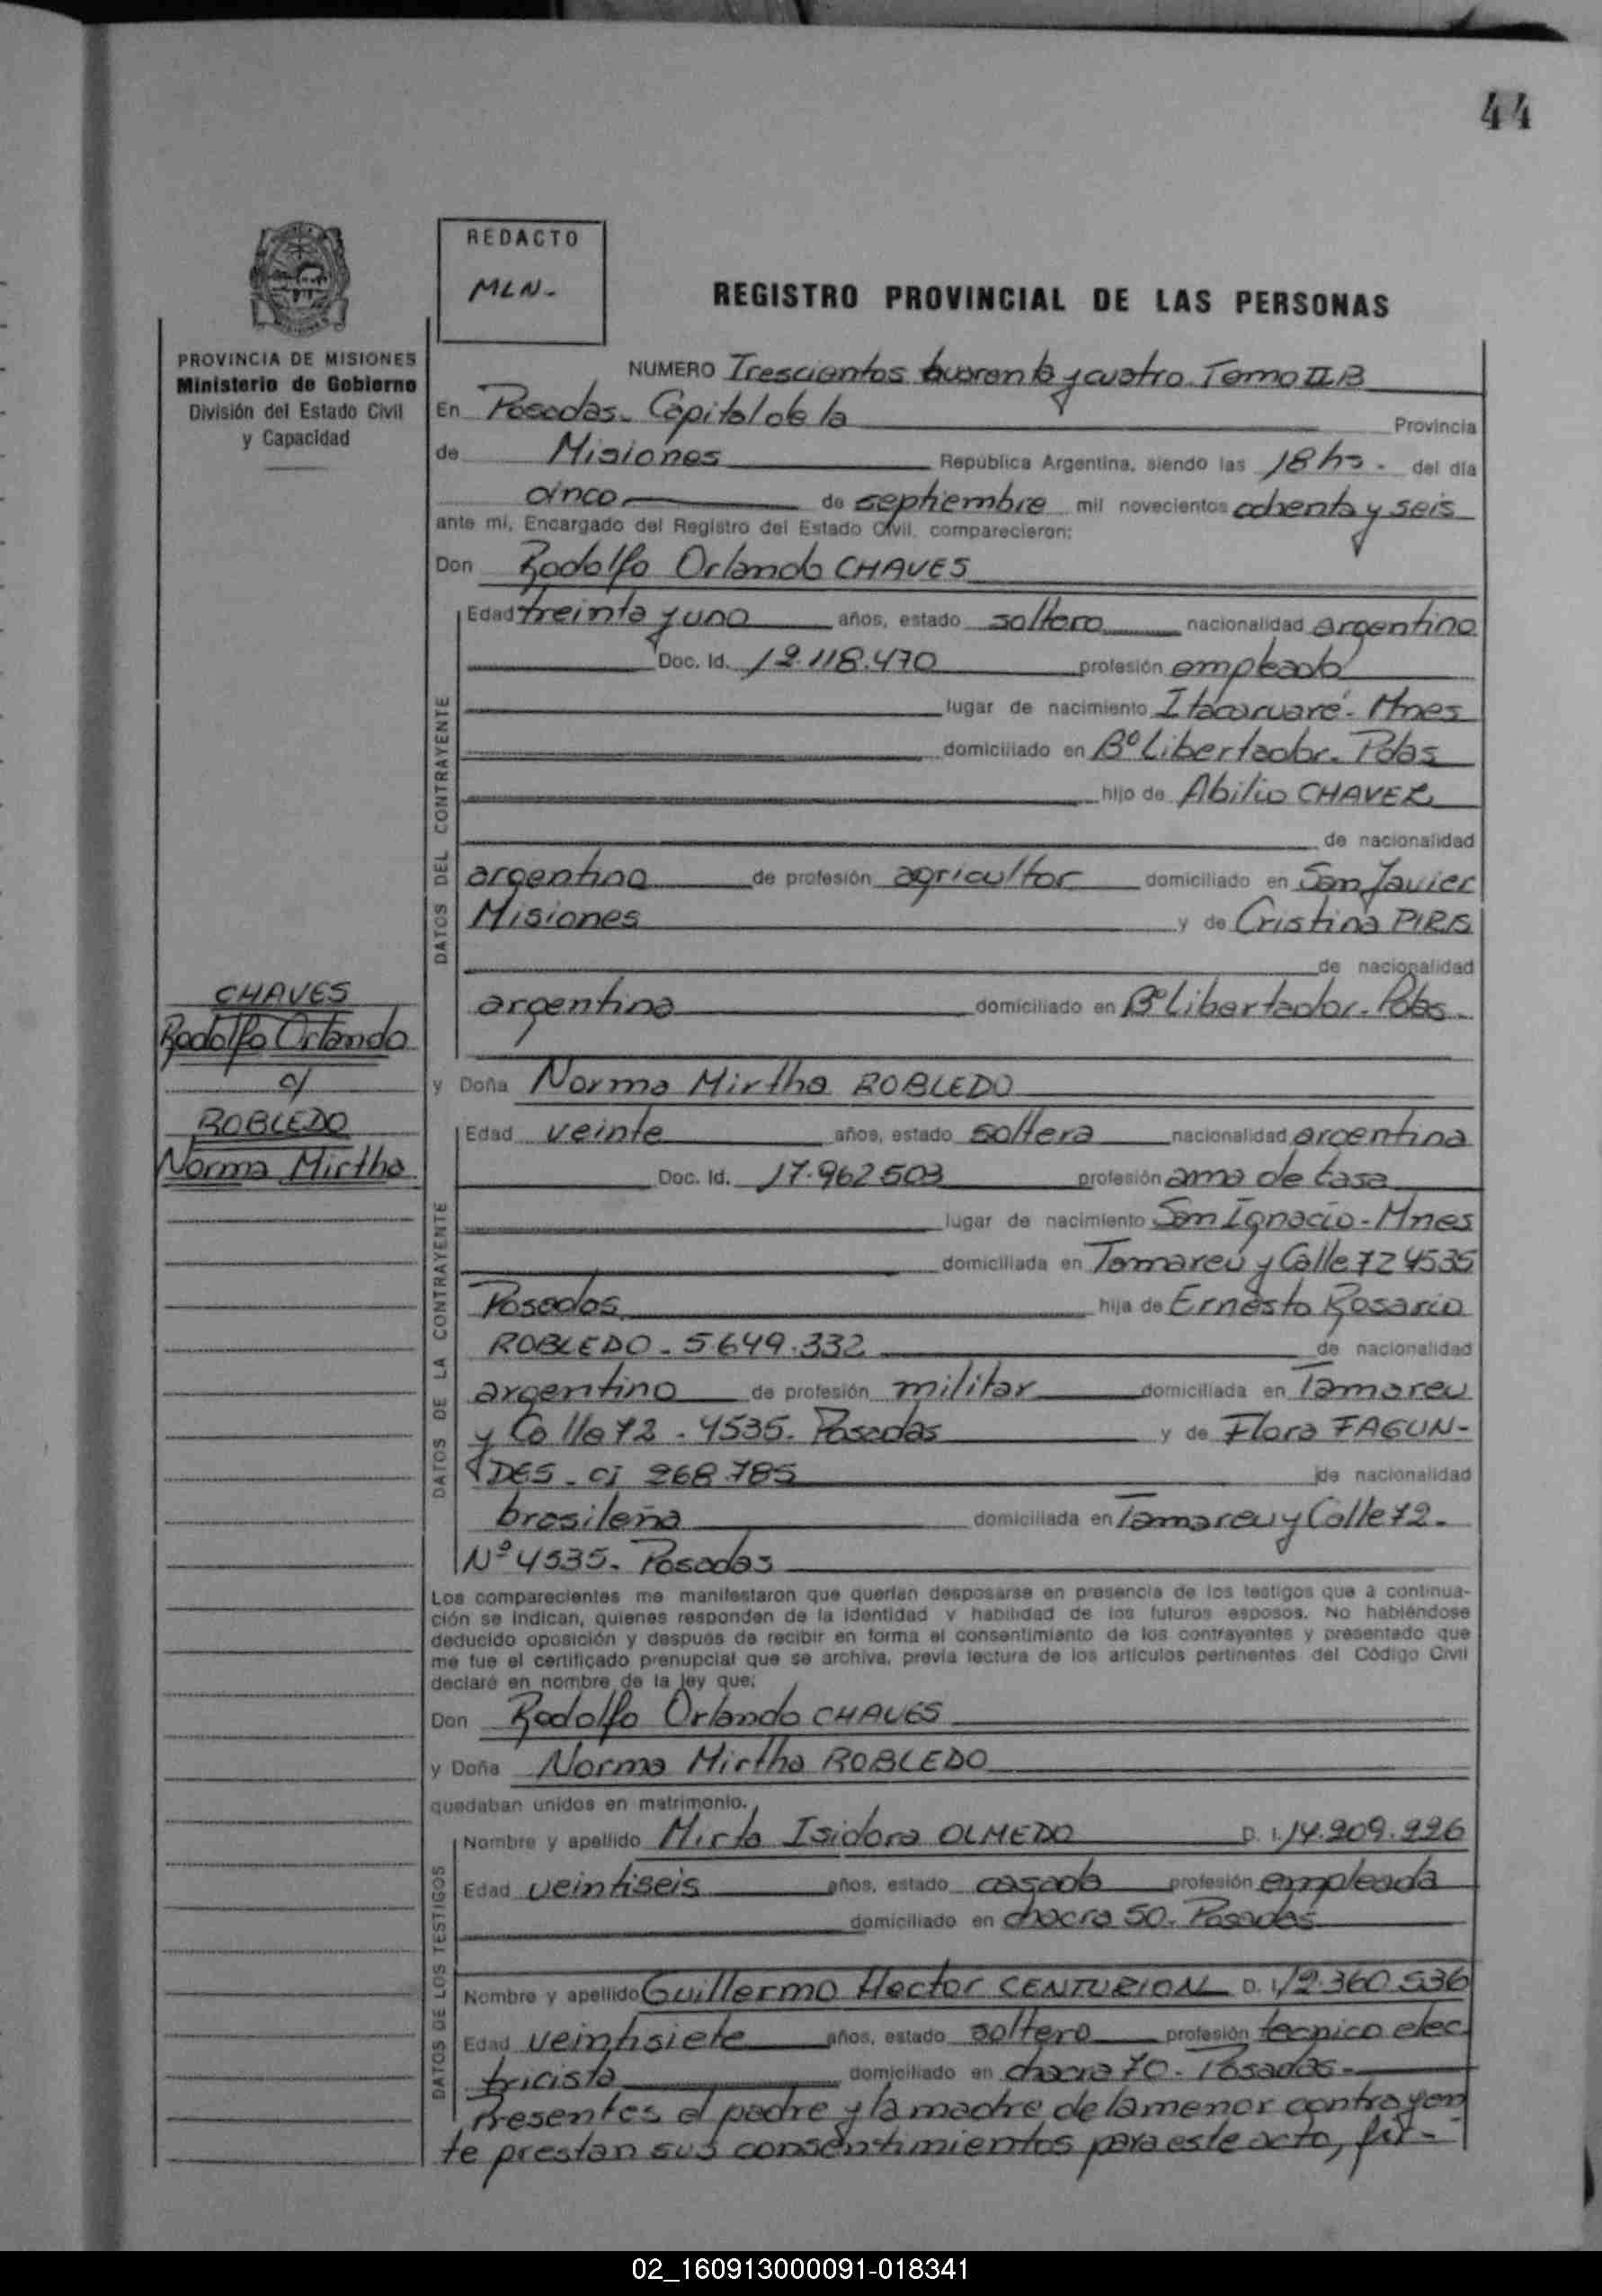 44
REDACTO
MLN-
REGISTRO PROVINCIAL DE LAS PERSONAS
PROVINCIA DE MISIONES
Ministerio de Gobierno
División del Estado Civil
y Capacidad
NUMERO Trescientos cuarenta y cuatro. Tomo II B
En Posadas. Capital de la Provincia
de Misiones República Argentina, siendo las 18 hs. del día
cinco de septiembre mil novecientos ochenta y seis
ante mí, Encargado del Registro del Estado Civil, comparecieron:
Don Rodolfo Orlando CHAVES
DATOS DEL CONTRAYENTE
Edad treinta y uno años, estado soltero nacionalidad argentino
Doc. Id. 12.118.470 profesión empleado
lugar de nacimiento Itacaruaré. Mnes
domiciliado en Bº Libertador. Pdas
hijo de Abilio CHAVER
de nacionalidad
argentino de profesión agricultor domiciliado en San Javier
Misiones y de Cristina PIRIS
de nacionalidad
argentina domiciliado en Bº Libertador. Pdas.
CHAVES
Rodolfo Orlando
c/
ROBLEDO
Norma Mirtha
y Doña Norma Mirtha ROBLEDO
DATOS DE LA CONTRAYENTE
Edad veinte años, estado soltera nacionalidad argentina
Doc. Id. 17.962503 profesión ama de casa
lugar de nacimiento San Ignacio - Mnes
domiciliada en Tamareu y Calle 72 4535
Posadas hija de Ernesto Rosario
ROBLEDO - 5.649.332 de nacionalidad
argentino de profesión militar domiciliada en Tamareu
y Calle 72 - 4535. Posadas y de Flora FAGUN-
DES - CI 268.785 de nacionalidad
brasileña domiciliada en Tamareu y Calle 72.
Nº 4535. Posadas
Los comparecientes me manifestaron que querían desposarse en presencia de los testigos que a continua-
ción se indican, quienes responden de la identidad y habilidad de los futuros esposos. No habiéndose
deducido oposición y después de recibir en forma el consentimiento de los contrayentes y presentado que
me fue el certificado prenupcial que se archiva, previa lectura de los artículos pertinentes del Código Civil
declaré en nombre de la ley que:
Don Rodolfo Orlando CHAVES
y Doña Norma Mirtha ROBLEDO
quedaban unidos en matrimonio.
DATOS DE LOS TESTIGOS
Nombre y apellido Mirta Isidora OLMEDO D. I. 14.209.226
Edad veintiseis años, estado casada profesión empleada
domiciliado en chacra 50. Posadas
Nombre y apellido Guillermo Hector CENTURION D. I. 12.360.536
Edad veintisiete años, estado soltero profesión tecnico elec
tricista domiciliado en chacra 70. Posadas-
Presentes el padre y la madre de la menor contrayen
te prestan sus consentimientos para este acto, fir-
02_160913000091-018341